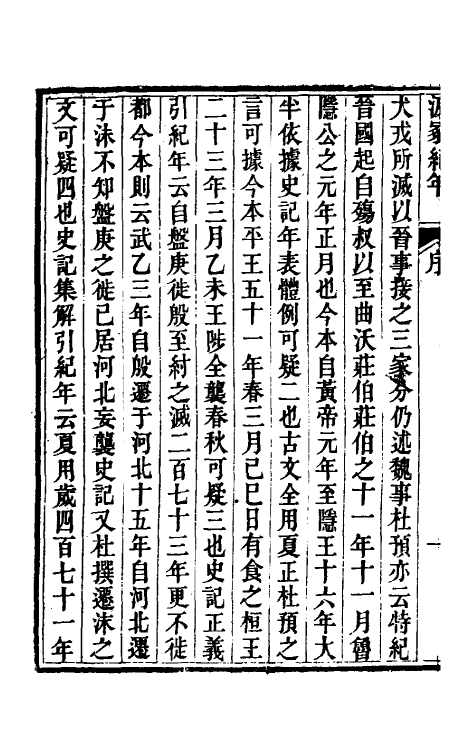 汲冢紀年
序
一
犬戎所滅以晉事接之三家分仍述魏事杜預亦云特紀
晉國起自殤叔以至曲沃莊伯莊伯之十一年十一月魯
隱公之元年正月也今本自黃帝元年至隱王十六年大
半依據史記年表體例可疑二也古文全用夏正杜預之
言可據今本平王五十一年春三月己巳日有食之桓王
二十三年三月乙未王陟全襲春秋可疑三也史記正義
引紀年云自盤庚徙殷至紂之滅二百七十三年更不徙
都今本則云武乙三年自殷遷于河北十五年自河北遷
于沬不知盤庚之徙已居河北妄襲史記又杜撰遷沬之
文可疑四也史記集解引紀年云夏用歲四百七十一年